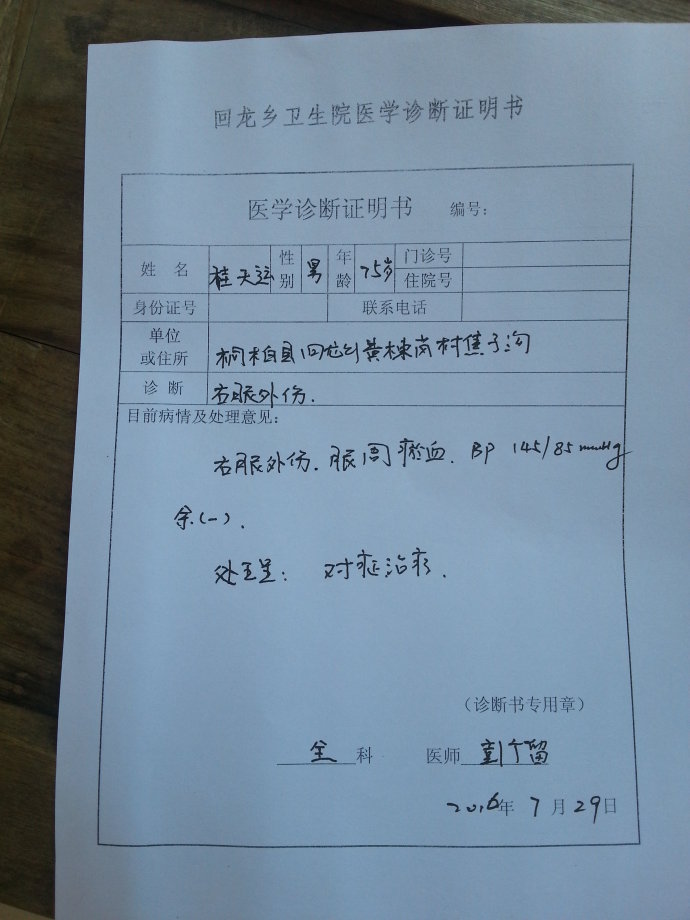 回龙乡卫生院医学诊断证明书
医学诊断证明书 编号：
姓 名 桂天运 性别 男 年龄 75岁 门诊号
住院号
身份证号 联系电话
单位或住所 桐柏县回龙乡黄楝岗村焦子沟
诊 断 右眼外伤.
目前病情及处理意见：
右眼外伤. 眼周瘀血. BP 145/85mmHg
余(一).
处理： 对症治疗.
（诊断书专用章）
全 科 医师
2016年 7 月 29日